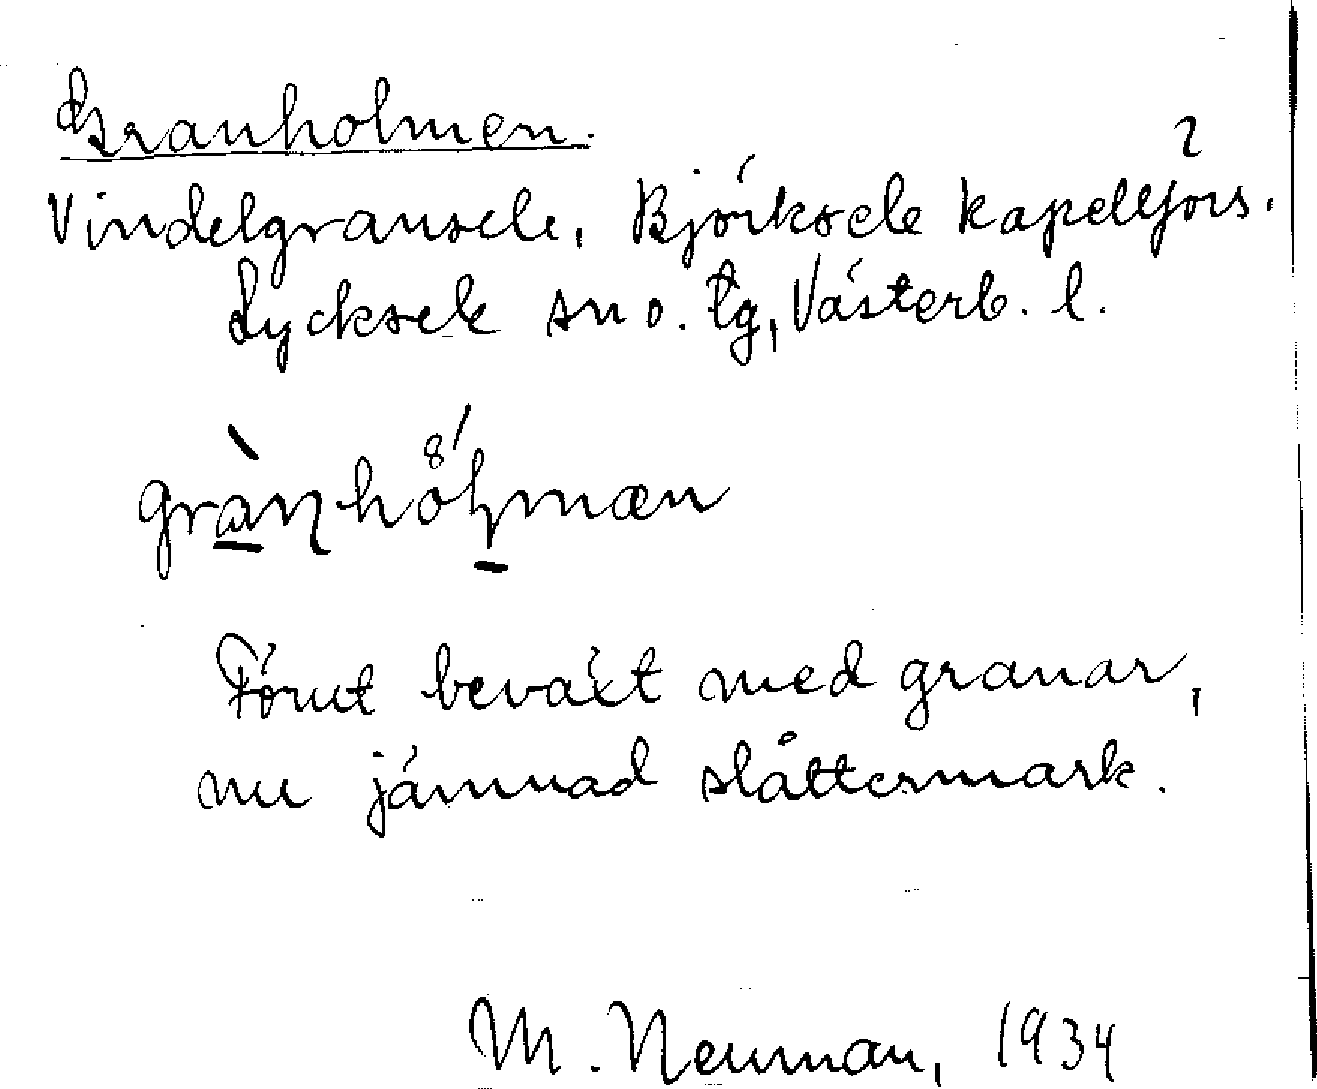 Granholmen.
2
Vindelgransele, Björksele kapellförs.
Lycksele sn o. tg, Västerb. l.
Förut beväxt med granar,
nu jämnad slåttermark.
M. Neuman, 1934